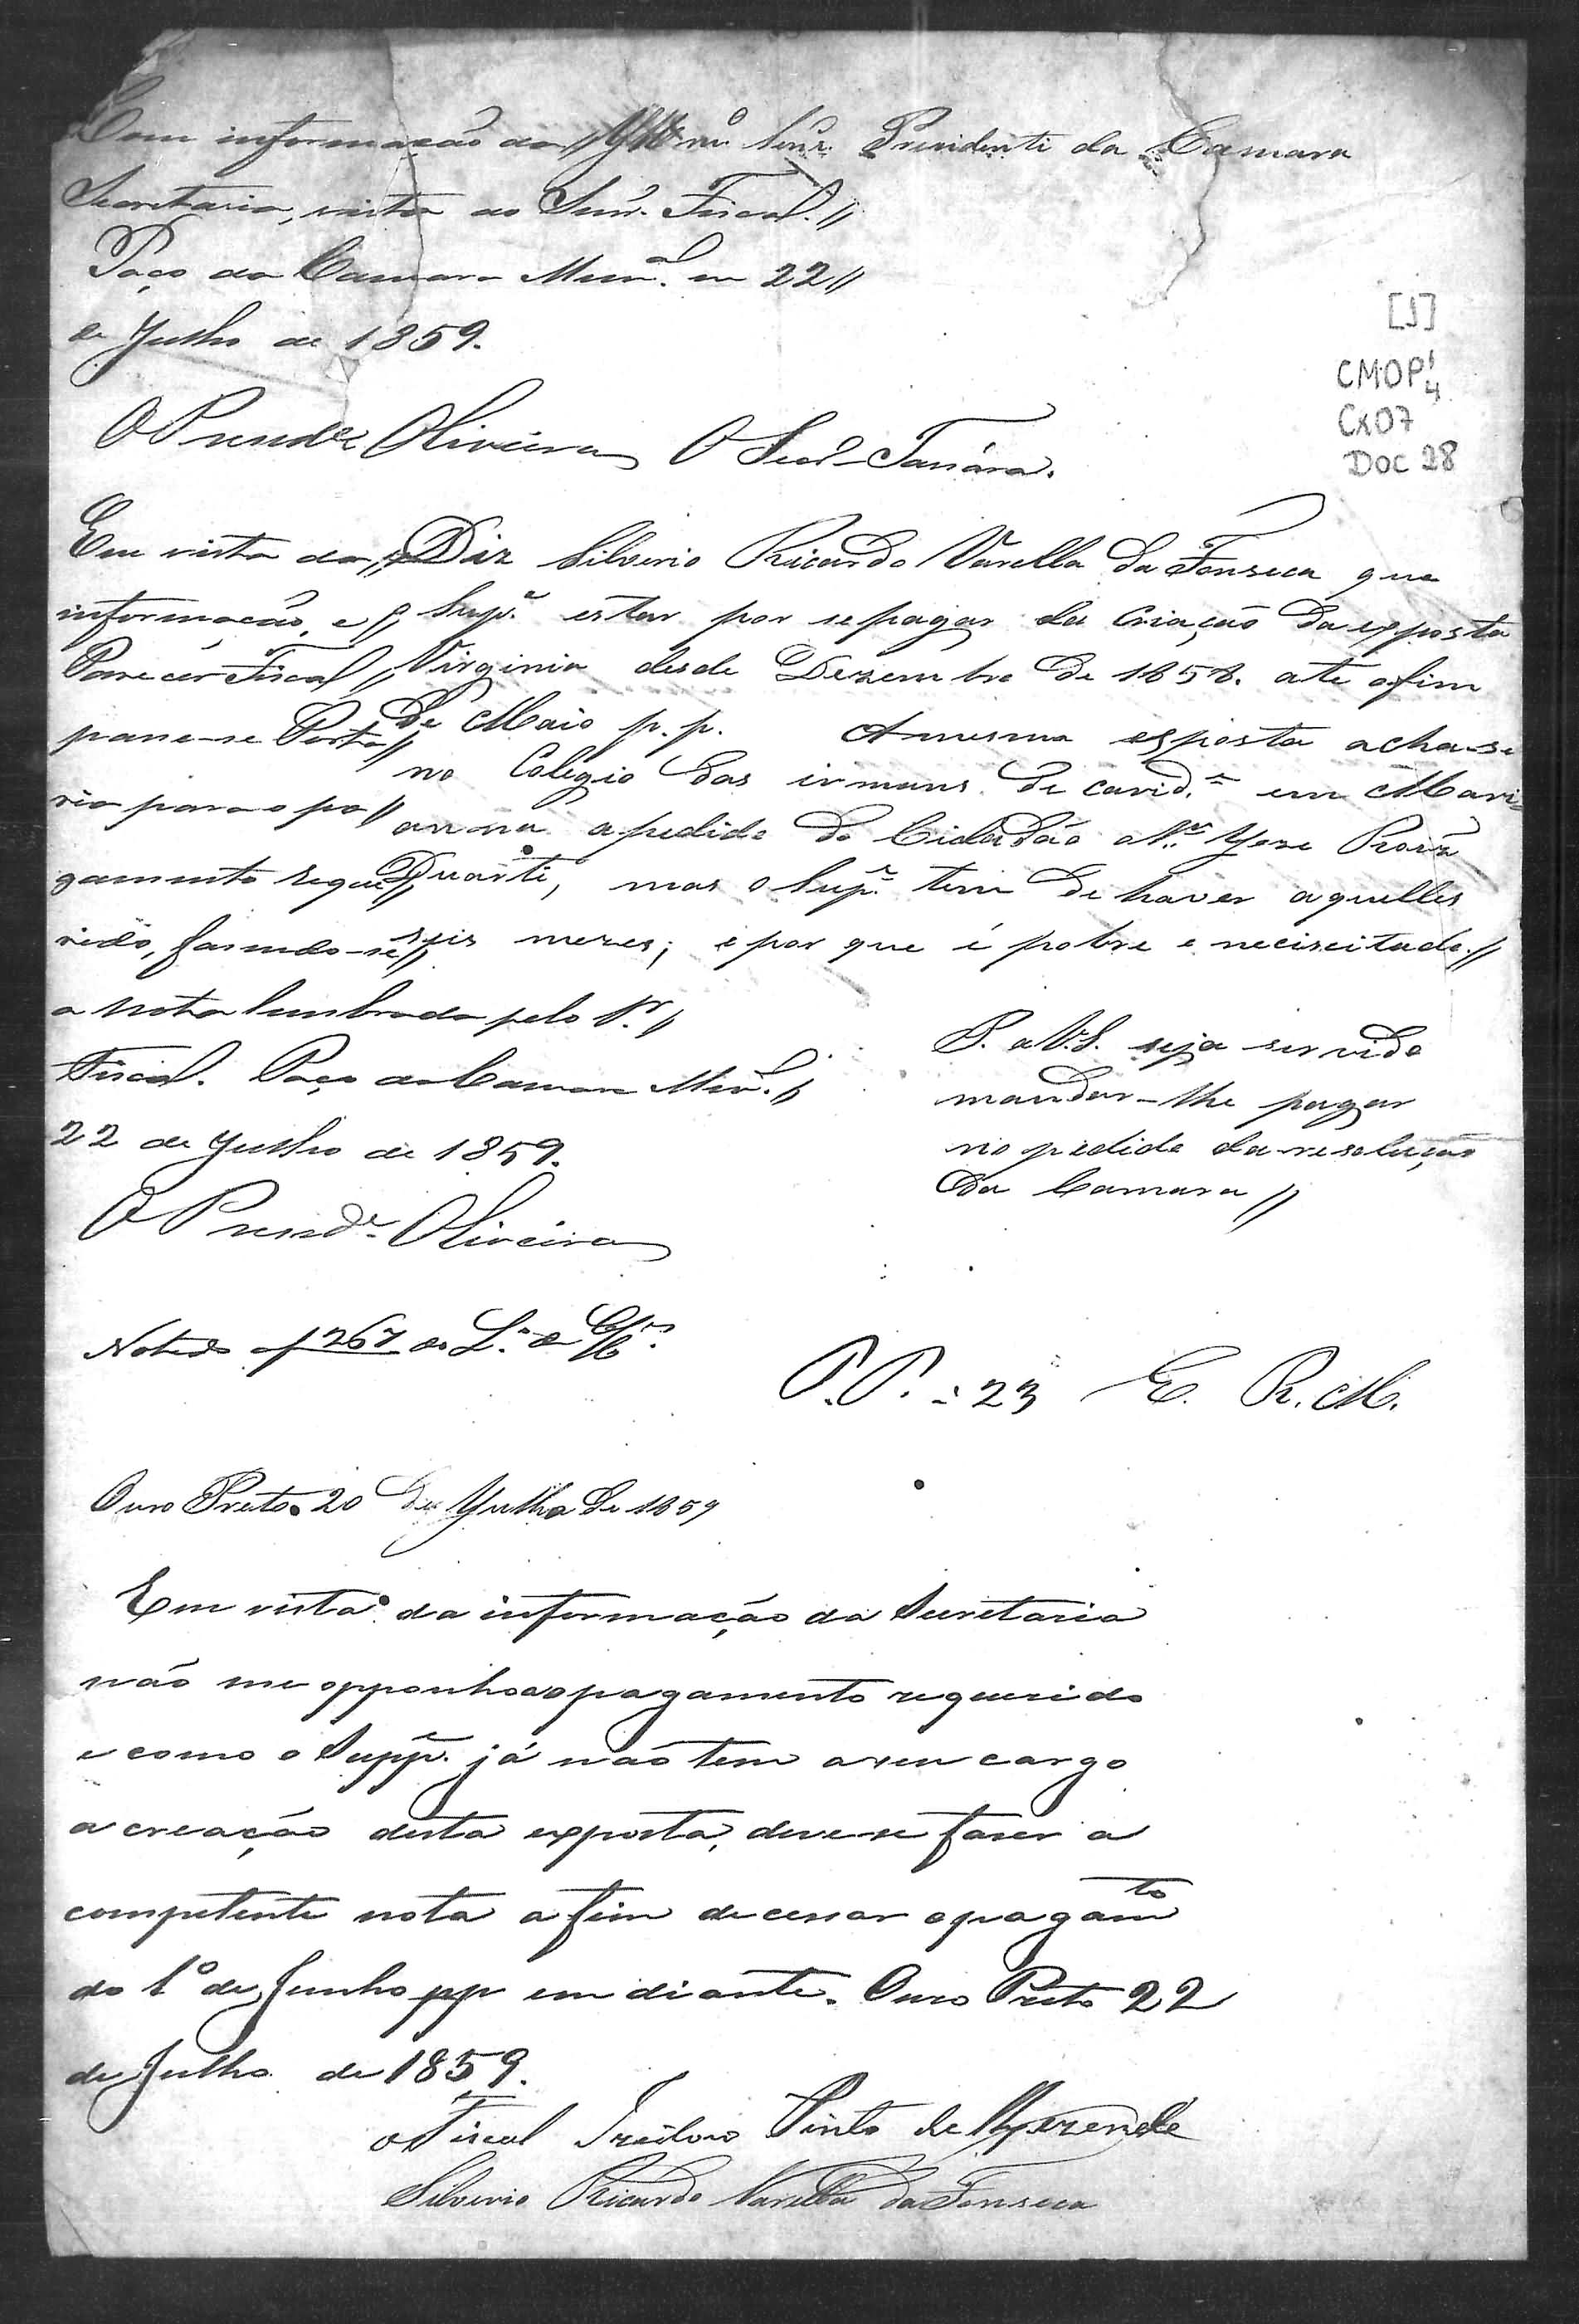 Com informação da // Illmo. Senr. Presidente da Camara
Secretaria, vista ao Snr. Fiscal. //
Paço da Camara Munal. em 22 //
de Julho de 1859.
O Presidte Oliveira O Secro
[1]
CMOP
Cx07
Doc 28
Em vista da //
informação, e //
Parecer Fiscal //
passe-se Porta //
ria para o pa //
gamento reque //
rido, fasendo-se //
a nota lembrada pelo Sr. //
Fiscal. Paço da Camara Munal. //
22 de Julho de 1859.
O Preside. Oliveira
Diz Silverio Ricardo Varella da Fonseca que
Supe. estar por se pagar da criação da exposta
Virginia desde Dezembro de 1858. ate o fim
de Maio p. p. A mesma exposta acha-se
no Colegio das irmans de caride. em Mari
anna a pedido do Cidadão Jose
Duarte, mas o Supe. tem de haver aquelles
seis mezes; e por que é pobre e neciscitado. //
P. a V.S. seja servido
mandar-lhe pagar
no pedido da resolução
da Camara //
Notado a f 267 do L.o de
P.P. = 23 E. R. M.
Ouro Preto 20 de Julho de 1859
Em vista da informação da Secretaria
não me opponho ao pagamento requerido
e como o Suppe. já não tem a seu cargo
a creação desta exposta, deve-se faser a
competente nota a fim de cessar o pagamto
do 1º de Junho pp em diante. Ouro Preto 22
de Julho de 1859.
O Fiscal Izidoro Pinto de Rezende
Silverio Ricardo Varella da Fonseca